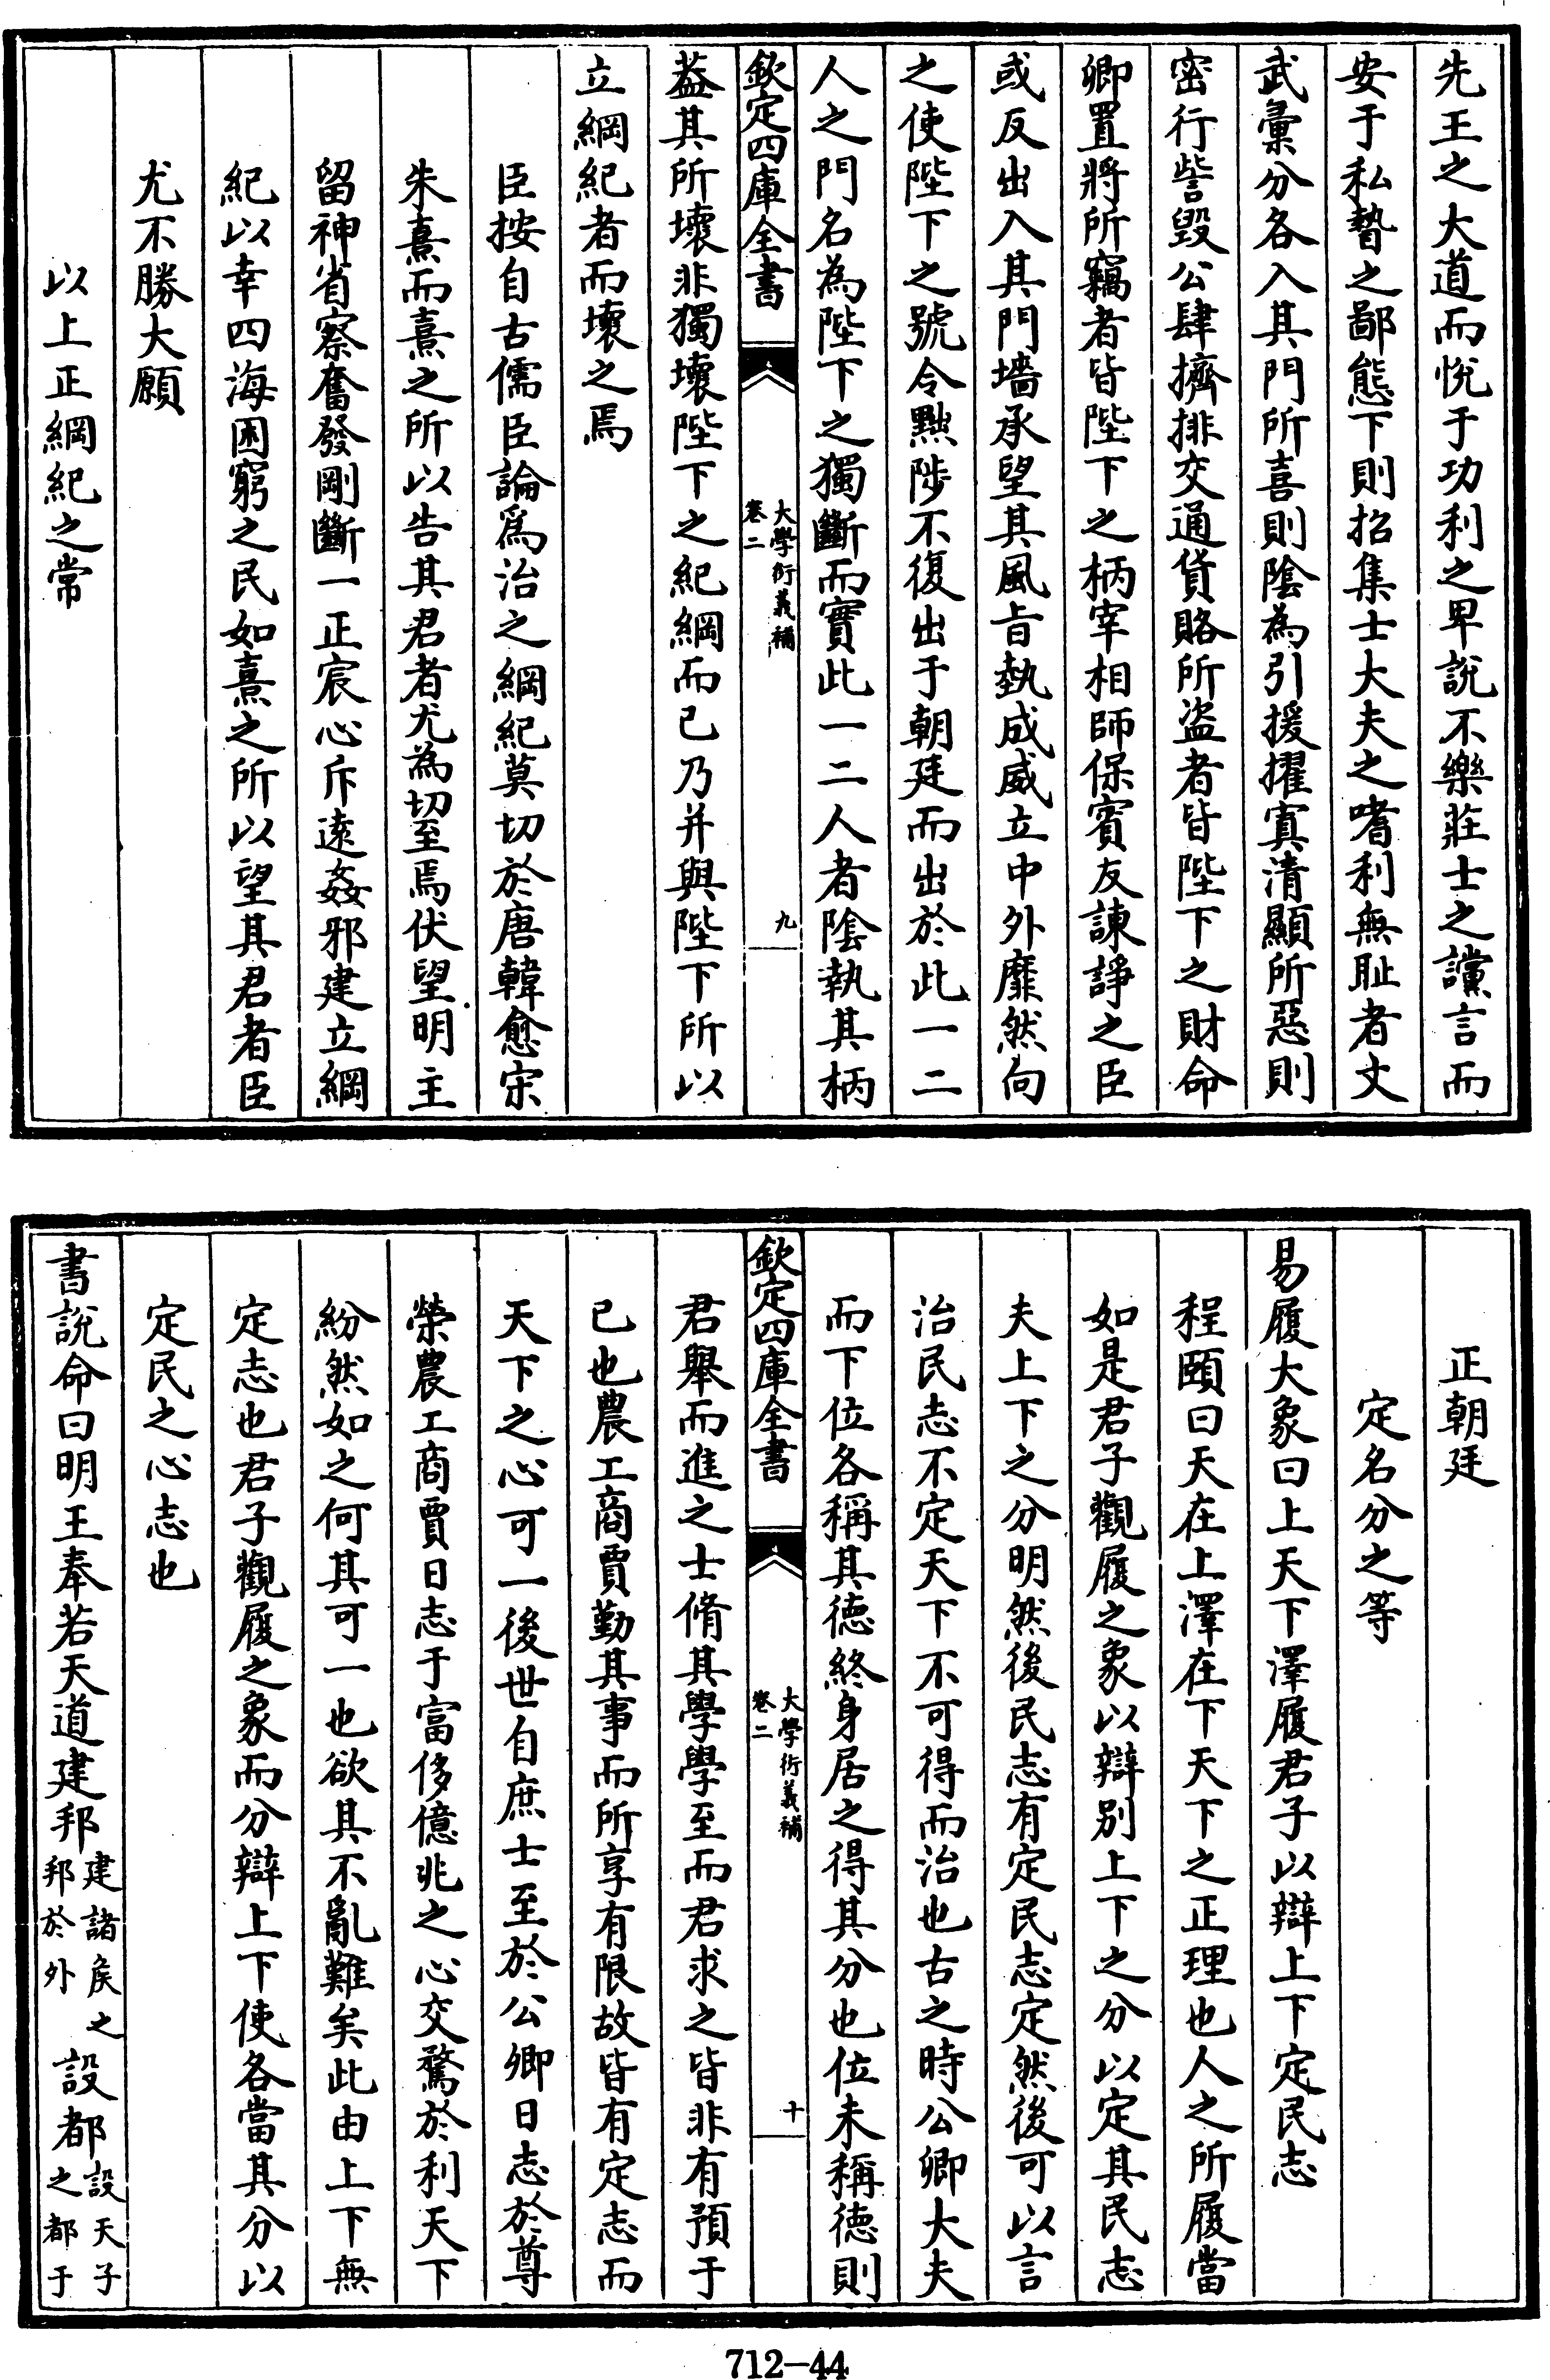 先王之大道而悅于功利之卑說不樂莊士之讜言而
安于私暬之鄙態下則招集士大夫之嗜利無恥者文
武彙分各入其門所喜則隂為引援擢寘清顯所惡則
密行訾毀公肆擠排交通貨賂所盜者皆陛下之財命
卿置將所竊者皆陛下之柄宰相師保賓友諫諍之臣
或反出入其門墻承望其風㫖埶成威立中外靡然向
之使陛下之號令黜陟不復出于朝廷而出於此一二
人之門名為陛下之獨斷而實此一二人者陰執其柄
欽定四庫全書 大學衍義補 卷二 九
葢其所壞非獨壞陛下之紀綱而已乃并與陛下所以
立綱紀者而壞之焉
臣按自古儒臣論爲治之綱紀莫切於唐韓愈宋
朱熹而熹之所以告其君者尤為切至焉伏望明主
留神省察奮發剛斷一正宸心斥遠姦邪建立綱
紀以幸四海困窮之民如熹之所以望其君者臣
尤不勝大願
以上正綱紀之常
正朝廷
定名分之等
易履大象曰上天下澤履君子以辯上下定民志
程頤曰天在上澤在下天下之正理也人之所履當
如是君子觀履之象以辯別上下之分以定其民志
夫上下之分明然後民志有定民志定然後可以言
治民志不定天下不可得而治也古之時公卿大夫
而下位各稱其徳終身居之得其分也位未稱徳則
欽定四庫全書 大學衍義補 卷二 十
君舉而進之士脩其學學至而君求之皆非有預于
已也農工商賈勤其事而所享有限故皆有定志而
天下之心可一後世自庶士至於公卿日志於尊
榮農工商賈日志于富侈億兆之心交騖於利天下
紛然如之何其可一也欲其不亂難矣此由上下無
定志也君子觀履之象而分辯上下使各當其分以
定民之心志也
書說命曰明王奉若天道建邦建諸矦之邦於外設都設天子之都于
712-44